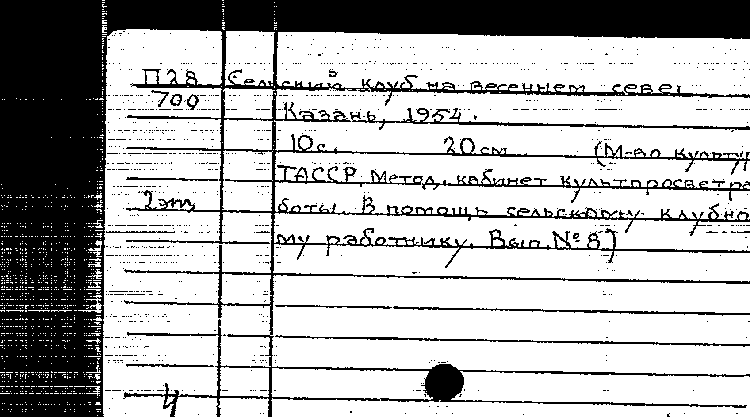 П28 Сельский клуб на весеннем севе.
700 Казань, 1954.
10с. 20см (М-во культур
ТАССР. Метод. кабинет культпросветра
2эт. боты. В помощь сельскому клубно
му работнику. Вып. № 8)
4